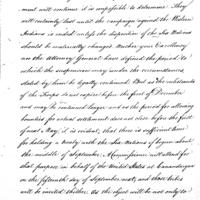 ment will continue it is impossible to determine. They
will certainly last until the campaign against the Western
Indians is ended unless the disposition of the Six Nations
should be materially changed. Whether your Excellency
or the Attorney General have defined the period to
which the suspension may under the circumstances
stated by him be legally continued. But as the enlistments
of the Troops do not expire before the first of December
and may be continued longer and as the period for allowing
bounties for actual settlement does not close before the first
of next May, it is evident, that there is sufficient time
for holding a treaty with the Six Nations of begun about
the middle of September. A Commissioner will attend for
that purpose in behalf of the United States at Canandargua
on the fifteenth day of September next, and those tribes
will be invited thither. As the object will be not only to